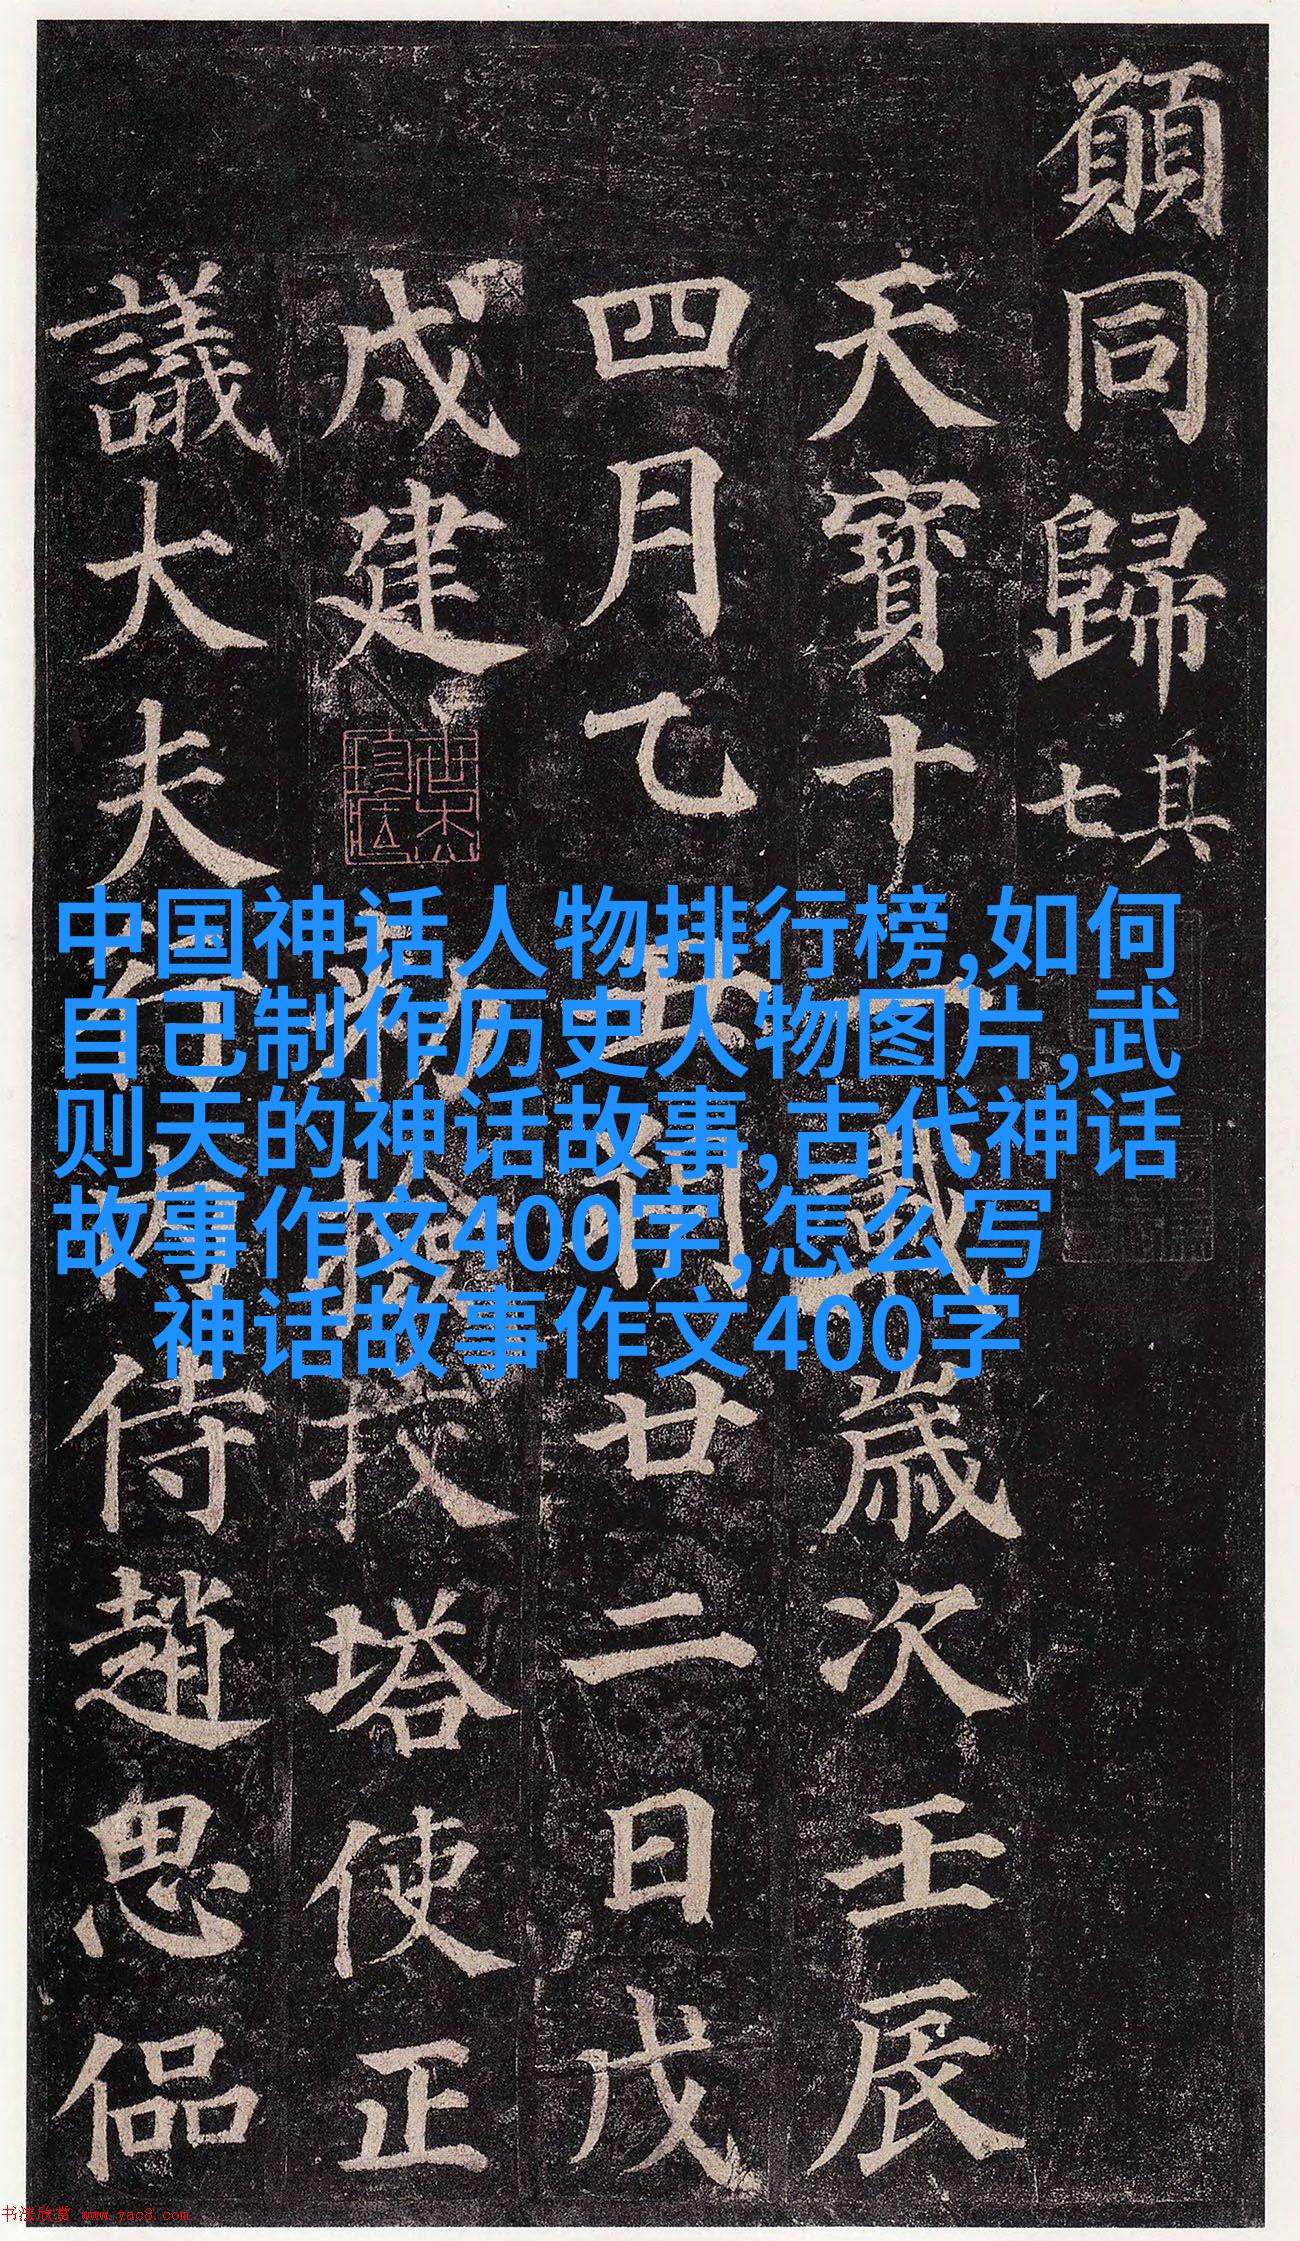 願同歸其七
天寶十一載歲次壬辰
四月乙丑朔廿二日戊
戌建勑檢挍塔使正
議大夫行內侍趙思偘
中国神话人物排行榜,如何
自己制作历史人物图片,武
则天的神话故事,古代神话
故事作文400字,怎么写
神话故事作文400字
书法欣赏 www.yac8.com